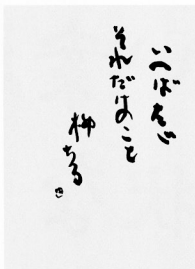 いへばただ
それだけのこと
柳ちる